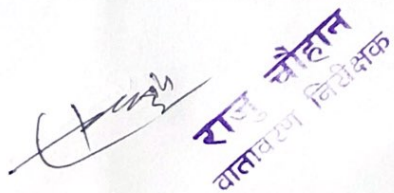 राजु चौहान
वातावरण निरीक्षक